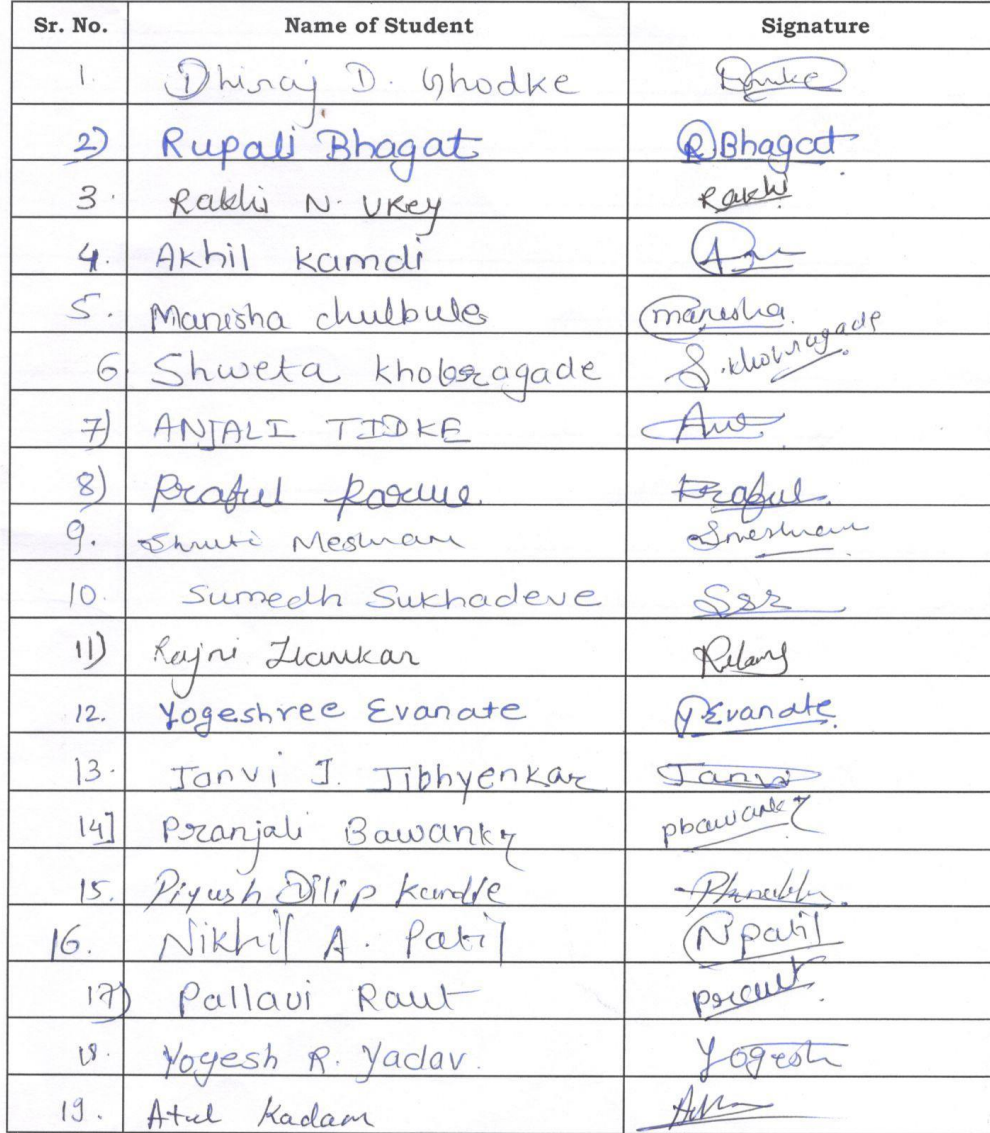 Sr. No. Name of Student Signature
1. Dhiraj D. Ghodke
2) Rupali Bhagat RBhagat
3. Rakhi N. Ukey Rakhi
4. Akhil Kamdi
5. Manisha chulbule manisha
6 Shweta khobragade S.khobragade
7) ANJALI TIDKE
8) Praful Parwe Praful
9. Shruti Meshram Smeshram
10. Sumedh Sukhadeve SSS
11) Rajni
12. Yogeshree Evanate YEvanate
13. Janvi J. Jibhyenkar Janvi
14] Pranjali Bawanky pbawanky
15. Piyush Dilip
16. Nikhil A. Patil NPatil
17) Pallavi Raut praut
18. Yogesh R. Yadav. Yogesh
19. Atul Kadam